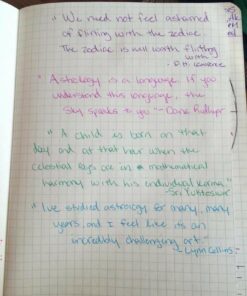 "We need not feel ashamed
of flirting with the zodiac.
The zodiac is well worth flirting
with"
- D.H. Lawrence
"Astrology is a language. If you
understand this language, the
Sky speaks to you" - Dane Rudhyar
"A child is born on that
day and at that hour when the
celestial Rays are in mathematical
harmony with his individual Karma"
- Sri Yukteswar
"I've studied astrology for many, many
years, and I feel like its an
incredibly challenging art."
- Lynn Collins